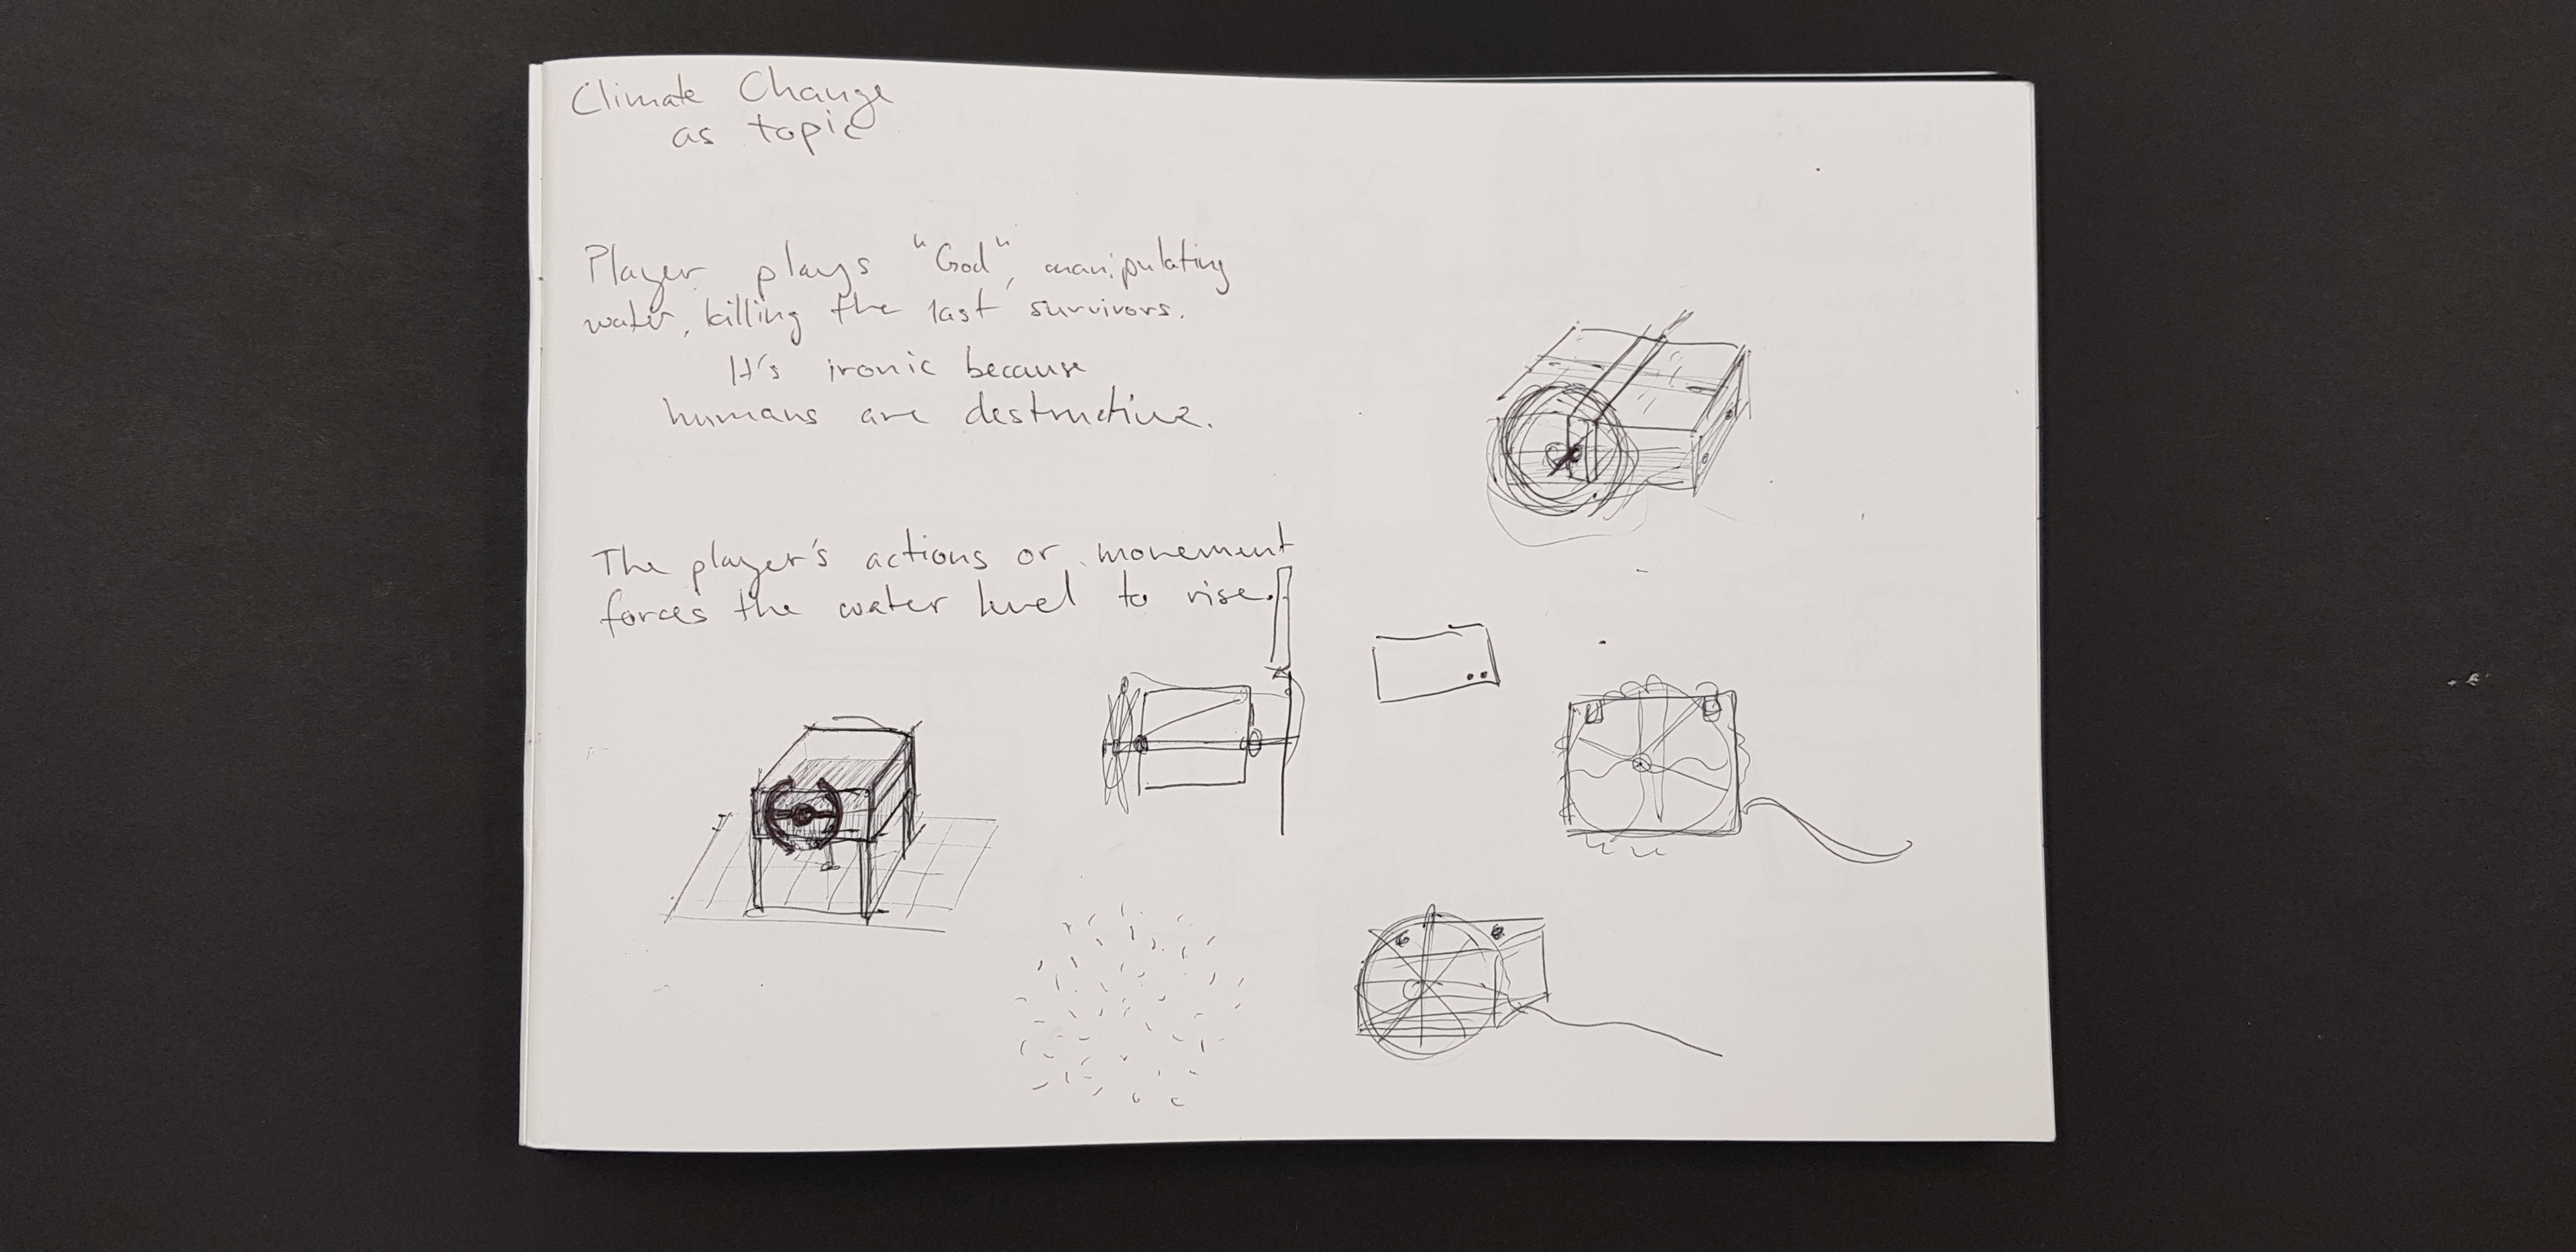 Climate Change
as topic
Player plays "God", manipulating
water, killing the last survivors.
It's ironic because
humans are destructive.
The player's actions or movement
forces the water level to rise.